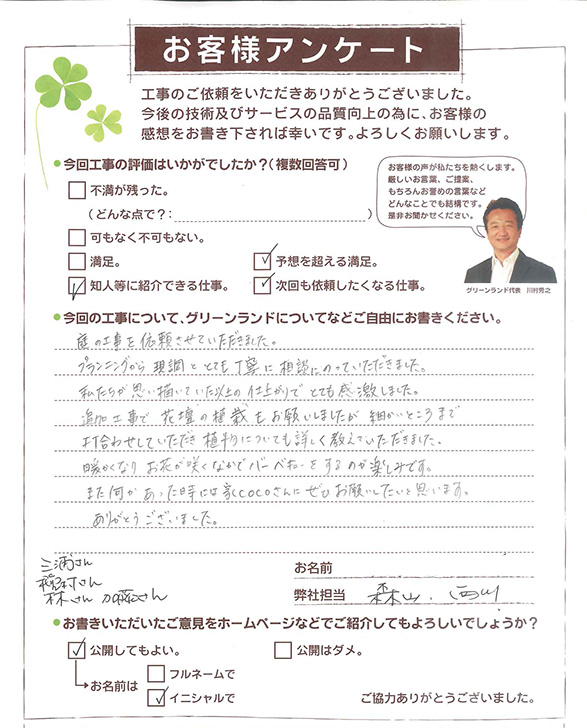 お客様アンケート
工事のご依頼をいただきありがとうございました。
今後の技術及びサービスの品質向上の為に、お客様の
感想をお書き下されば幸いです。よろしくお願いします。
●今回工事の評価はいかがでしたか？（複数回答可）
不満が残った。
（どんな点で？：　　）
可もなく不可もない。
満足。
予想を超える満足。
知人等に紹介できる仕事。
次回も依頼したくなる仕事。
お客様の声が私たちを熱くします。
厳しいお言葉、ご提案、
もちろんお誉めの言葉など
どんなことでも結構です。
是非お聞かせください。
グリーンランド代表　川村芳之
●今回の工事について、グリーンランドについてなどご自由にお書きください。
庭の工事を依頼させていただきました。
プランニングから現調ととても丁寧に相談にのっていただきました。
私たちが思い描いていた以上の仕上がりでとても感激しました。
追加工事で花壇の植栽もお願いしましたが細かいところまで
打合わせしていただき植物についても詳しく教えていただきました。
暖かくなりお花が咲くなかでバーベキューをするのが楽しみです。
また何かあった時には家COCOさんにぜひお願いしたいと思います。
ありがとうございました。
三浦さん
村さん
森さん 加藤さん
お名前
弊社担当　森山．西川
●お書きいただいたご意見をホームページなどでご紹介してもよろしいでしょうか？
公開してもよい。
公開はダメ。
お名前は
フルネームで
イニシャルで
ご協力ありがとうございました。